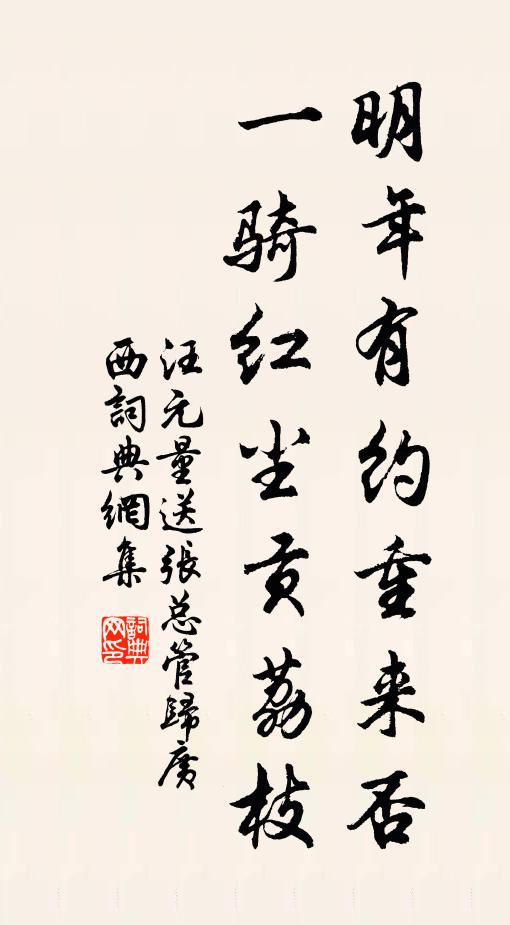 明年有约重来否
一骑红尘贡荔枝
汪元量送張总管歸广
西詞典網集
詞典
网印